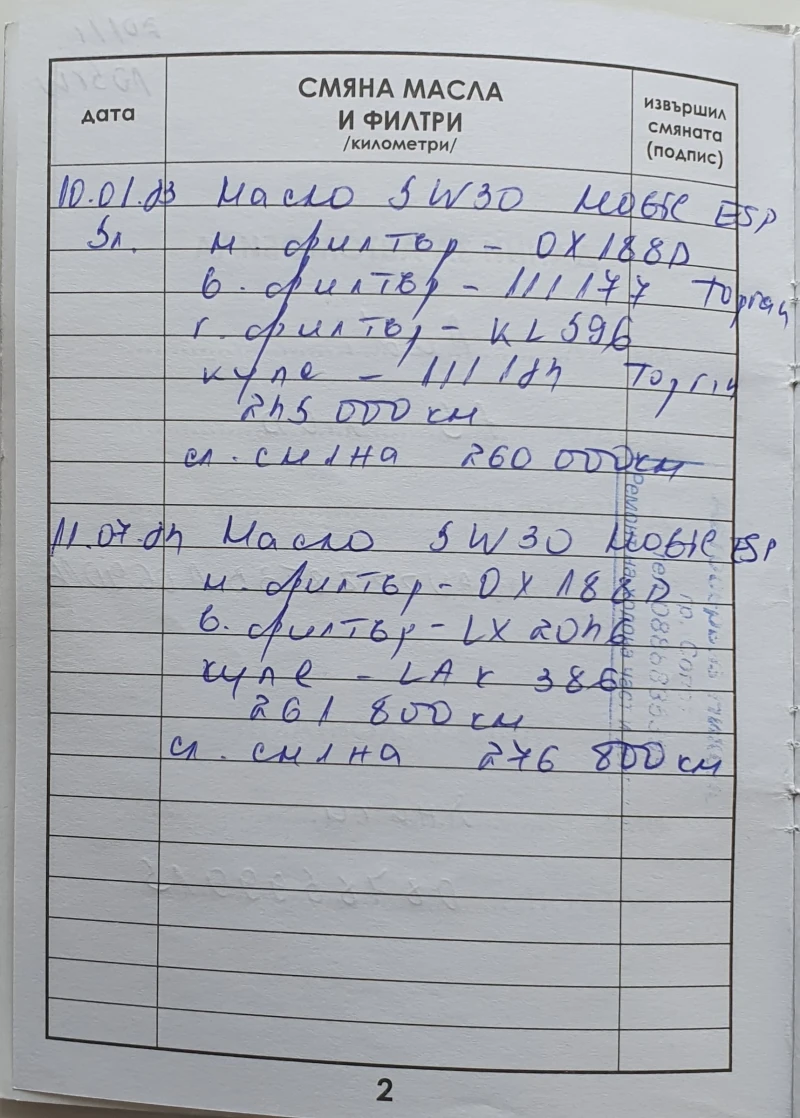 дата
СМЯНА МАСЛА
И ФИЛТРИ
/километри/
извършил
смяната
(подпис)
10.01.23 Масло 5W30 МОБІЛ ESP
5л. м. филтър - OX 188D
в. филтър - 111177
г. филтър - KL 596
купе - 111124
245 000 км
сл. смяна 260 000 км
11.07.24 Масло 5W30 МОБІЛ ESP
м. филтър - OX 188D
в. филтър - LX 2046
купе - LAK 386
261 800 км
сл. смяна 276 800 км
2